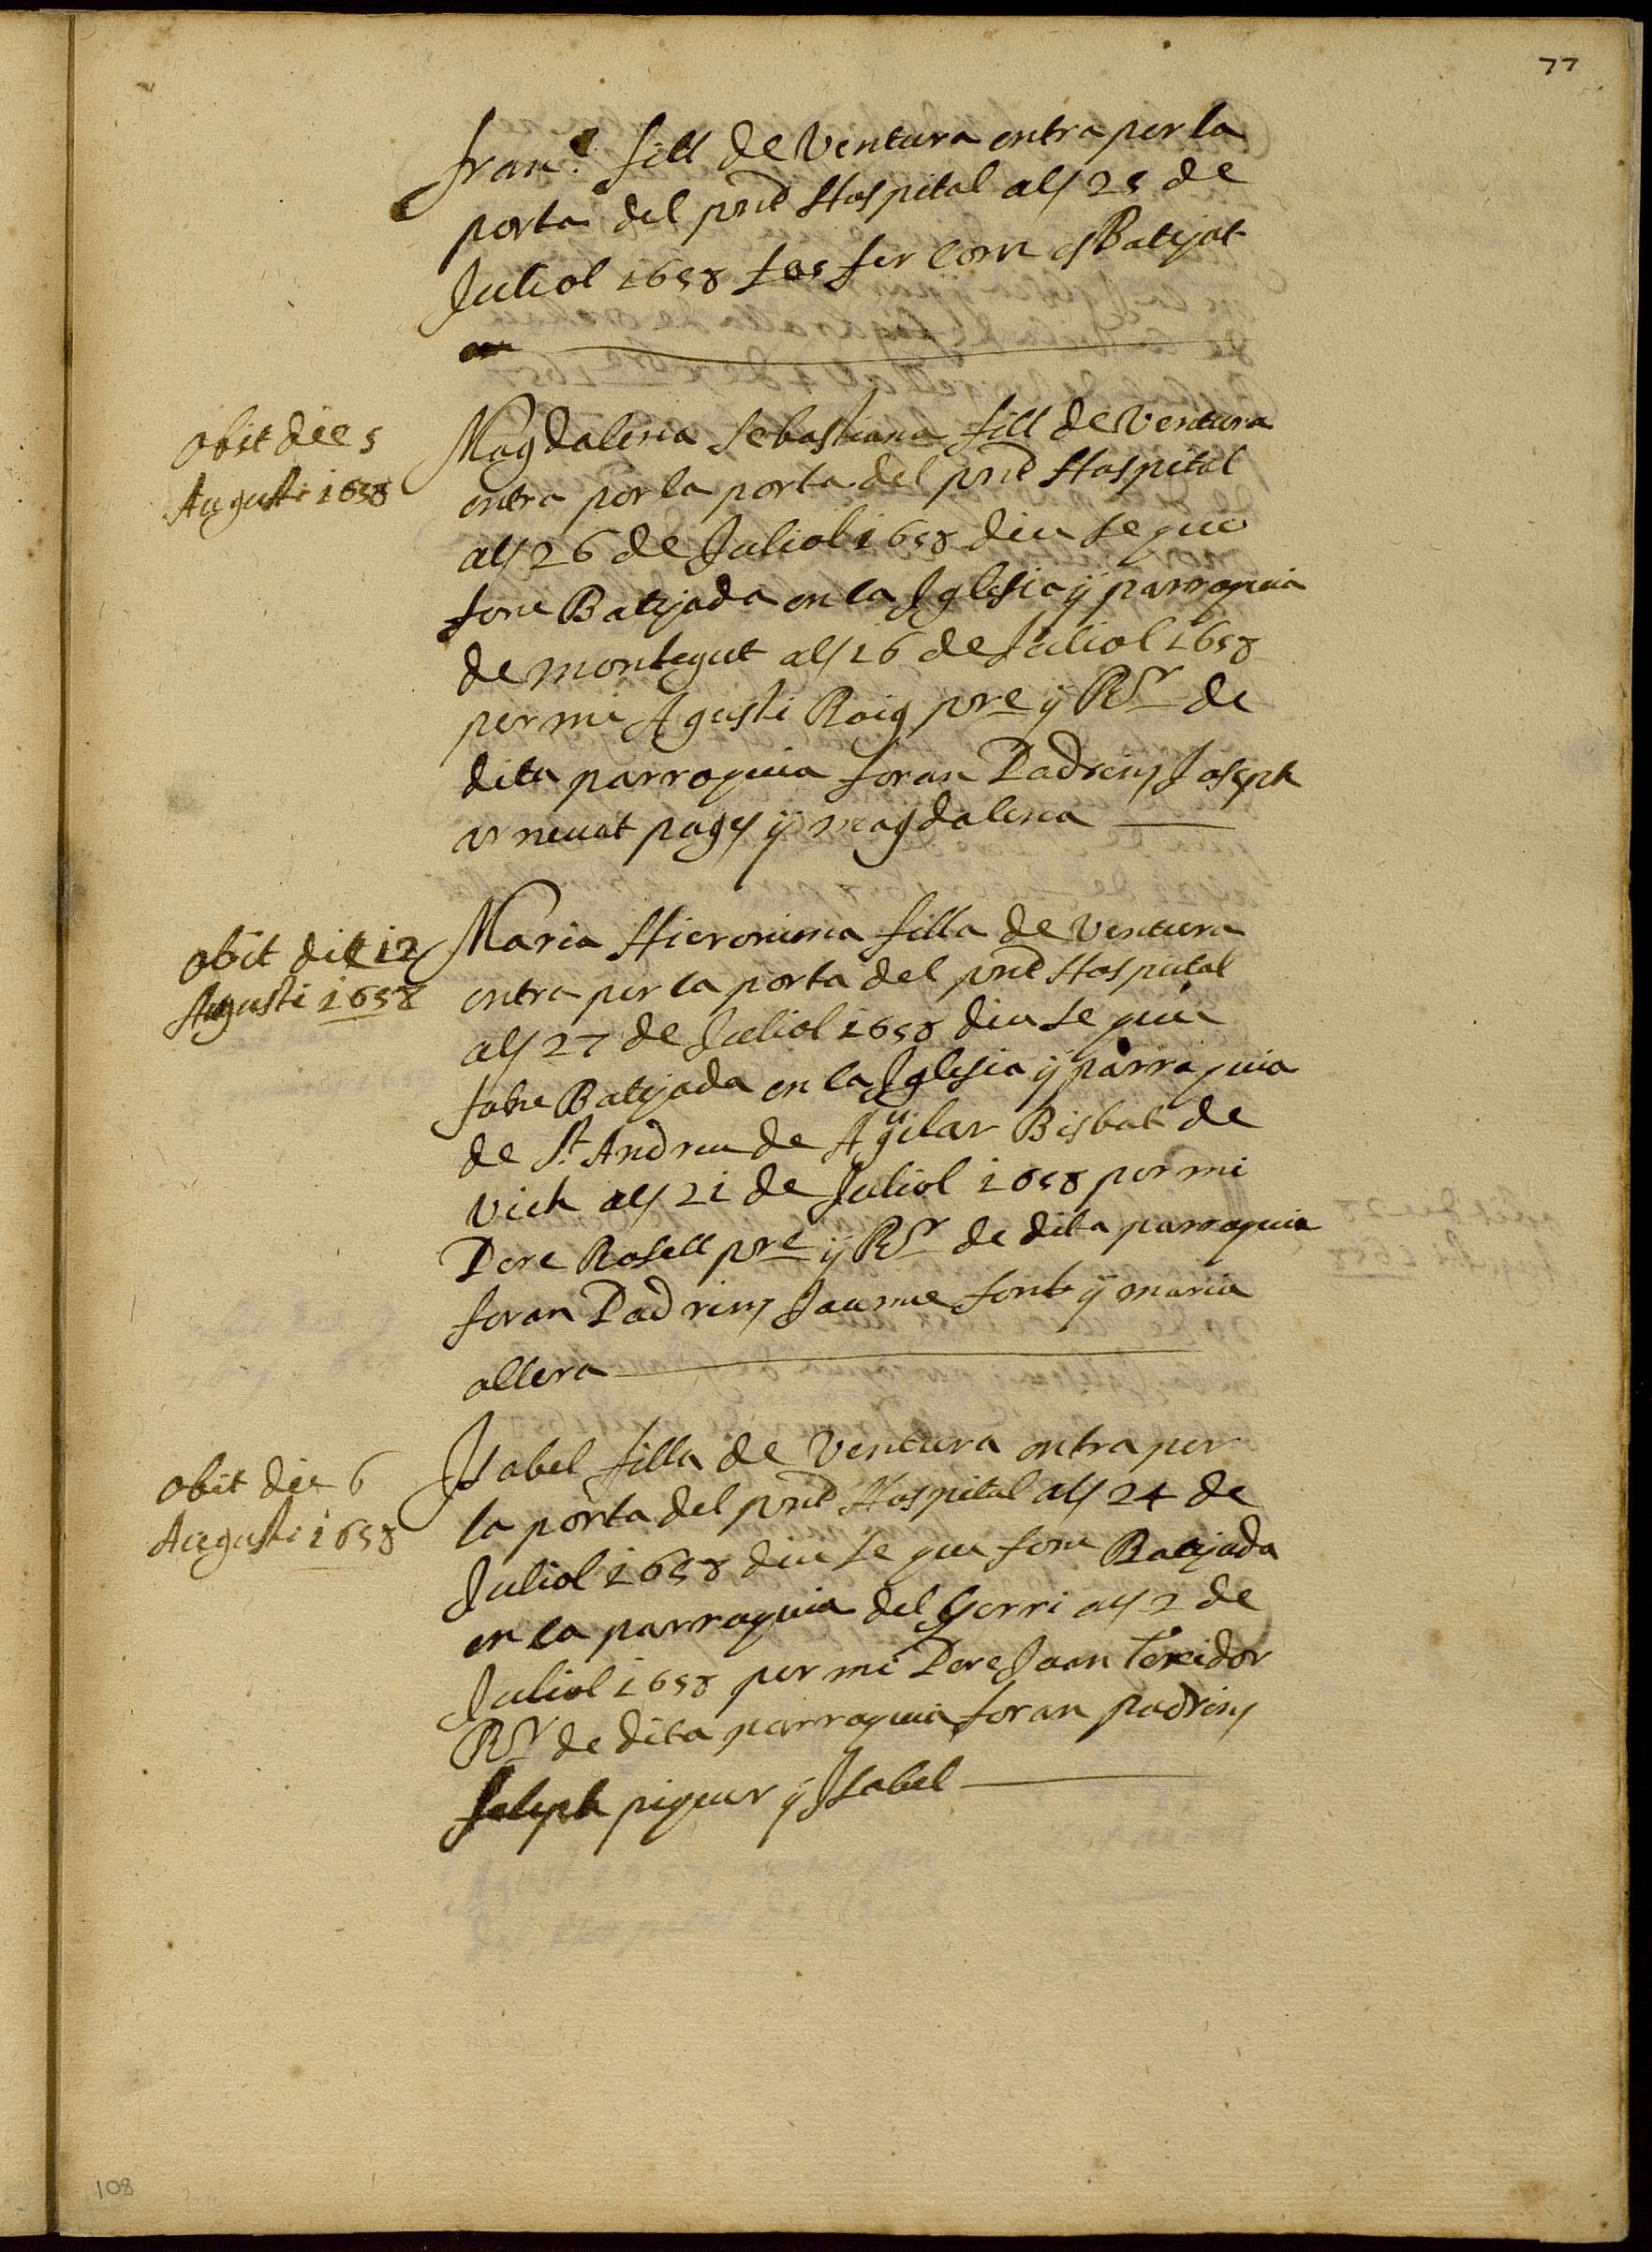 77
fran.co fill de Ventura entra per la
porta del pnt Hospital als 25 de
Juliol 1658 fas fer com es Batejat
obit die 5
Augusti 1658
Magdalena Sebastiana fill de Ventura
entra per la porta del pnt Hospital
als 26 de Juliol 1658 diu se que
fone Batejada en la Iglesia ÿ parroquia
de montagut als 16 de Juliol 1658
per mi Agusti Roig pre ÿ Ror de
dita parroquia foran Padrins Joseph
arneuat pages ÿ magdalena
obit die 12
Agusti 1658
Maria Hieronima filla de Ventura
entra per la porta del pnt Hospital
als 27 de Juliol 1658 diu se que
fone Batejada en la Iglesia ÿ parraquia
de St Andreu de Aguilar Bisbat de
Vich als 21 de Juliol 1658 per mi
Pere Rosell pre ÿ Ror de dita parroquia
foran Padrins Jaume font ÿ maria
ollera
obit die 6
Augusti 1658
Isabel filla de Ventura entra per
la porta del pnt Hospital als 24 de
Juliol 1658 diu se que fone Batejada
en la parroquia del Gorri als 2 de
Juliol 1658 per mi Pere Joan Texidor
Ror de dita parroquia foran padrins
Joseph piquer ÿ Isabel
108